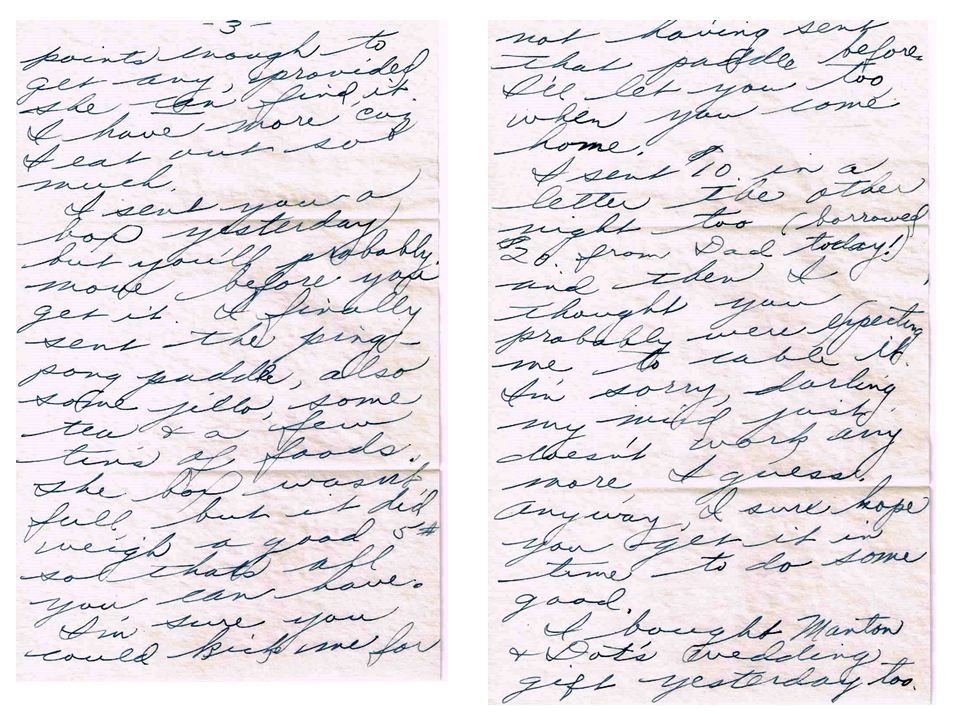 - 3 -
points enough to
get any, provided
she can find it.
I have more cuz
I eat out so
much.
I sent you a
box yesterday
but you'll probably
move before you
get it. I finally
sent the ping-
pong paddle, also
some jello, some
tea & a few
tins of foods.
The box wasn't
full, but it did
weigh a good 5#
so thats all
you can have.
I'm sure you
could kick me for
not having sent
that paddle before.
I'll let you too
when you come
home.
I sent $10. in a
letter the other
night too (borrowed
$20. from Dad today!)
and then I
thought you
probably were expecting
me to cable it.
I'm sorry, darling
my mind just
doesn't work any
more I guess.
Anyway, I sure hope
you get it in
time to do some
good.
I bought Manton
& Dot's wedding
gift yesterday too.